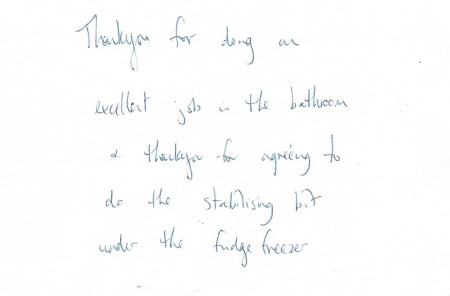 Thankyou for doing an
excellent job in the bathroom
& thankyou for agreeing to
do the stabilising bit
under the fridge freezer